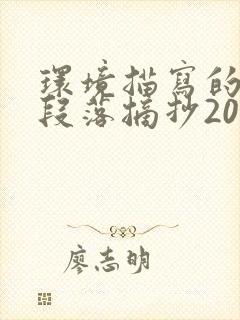 環境描寫的
段落摘抄20
廖志明